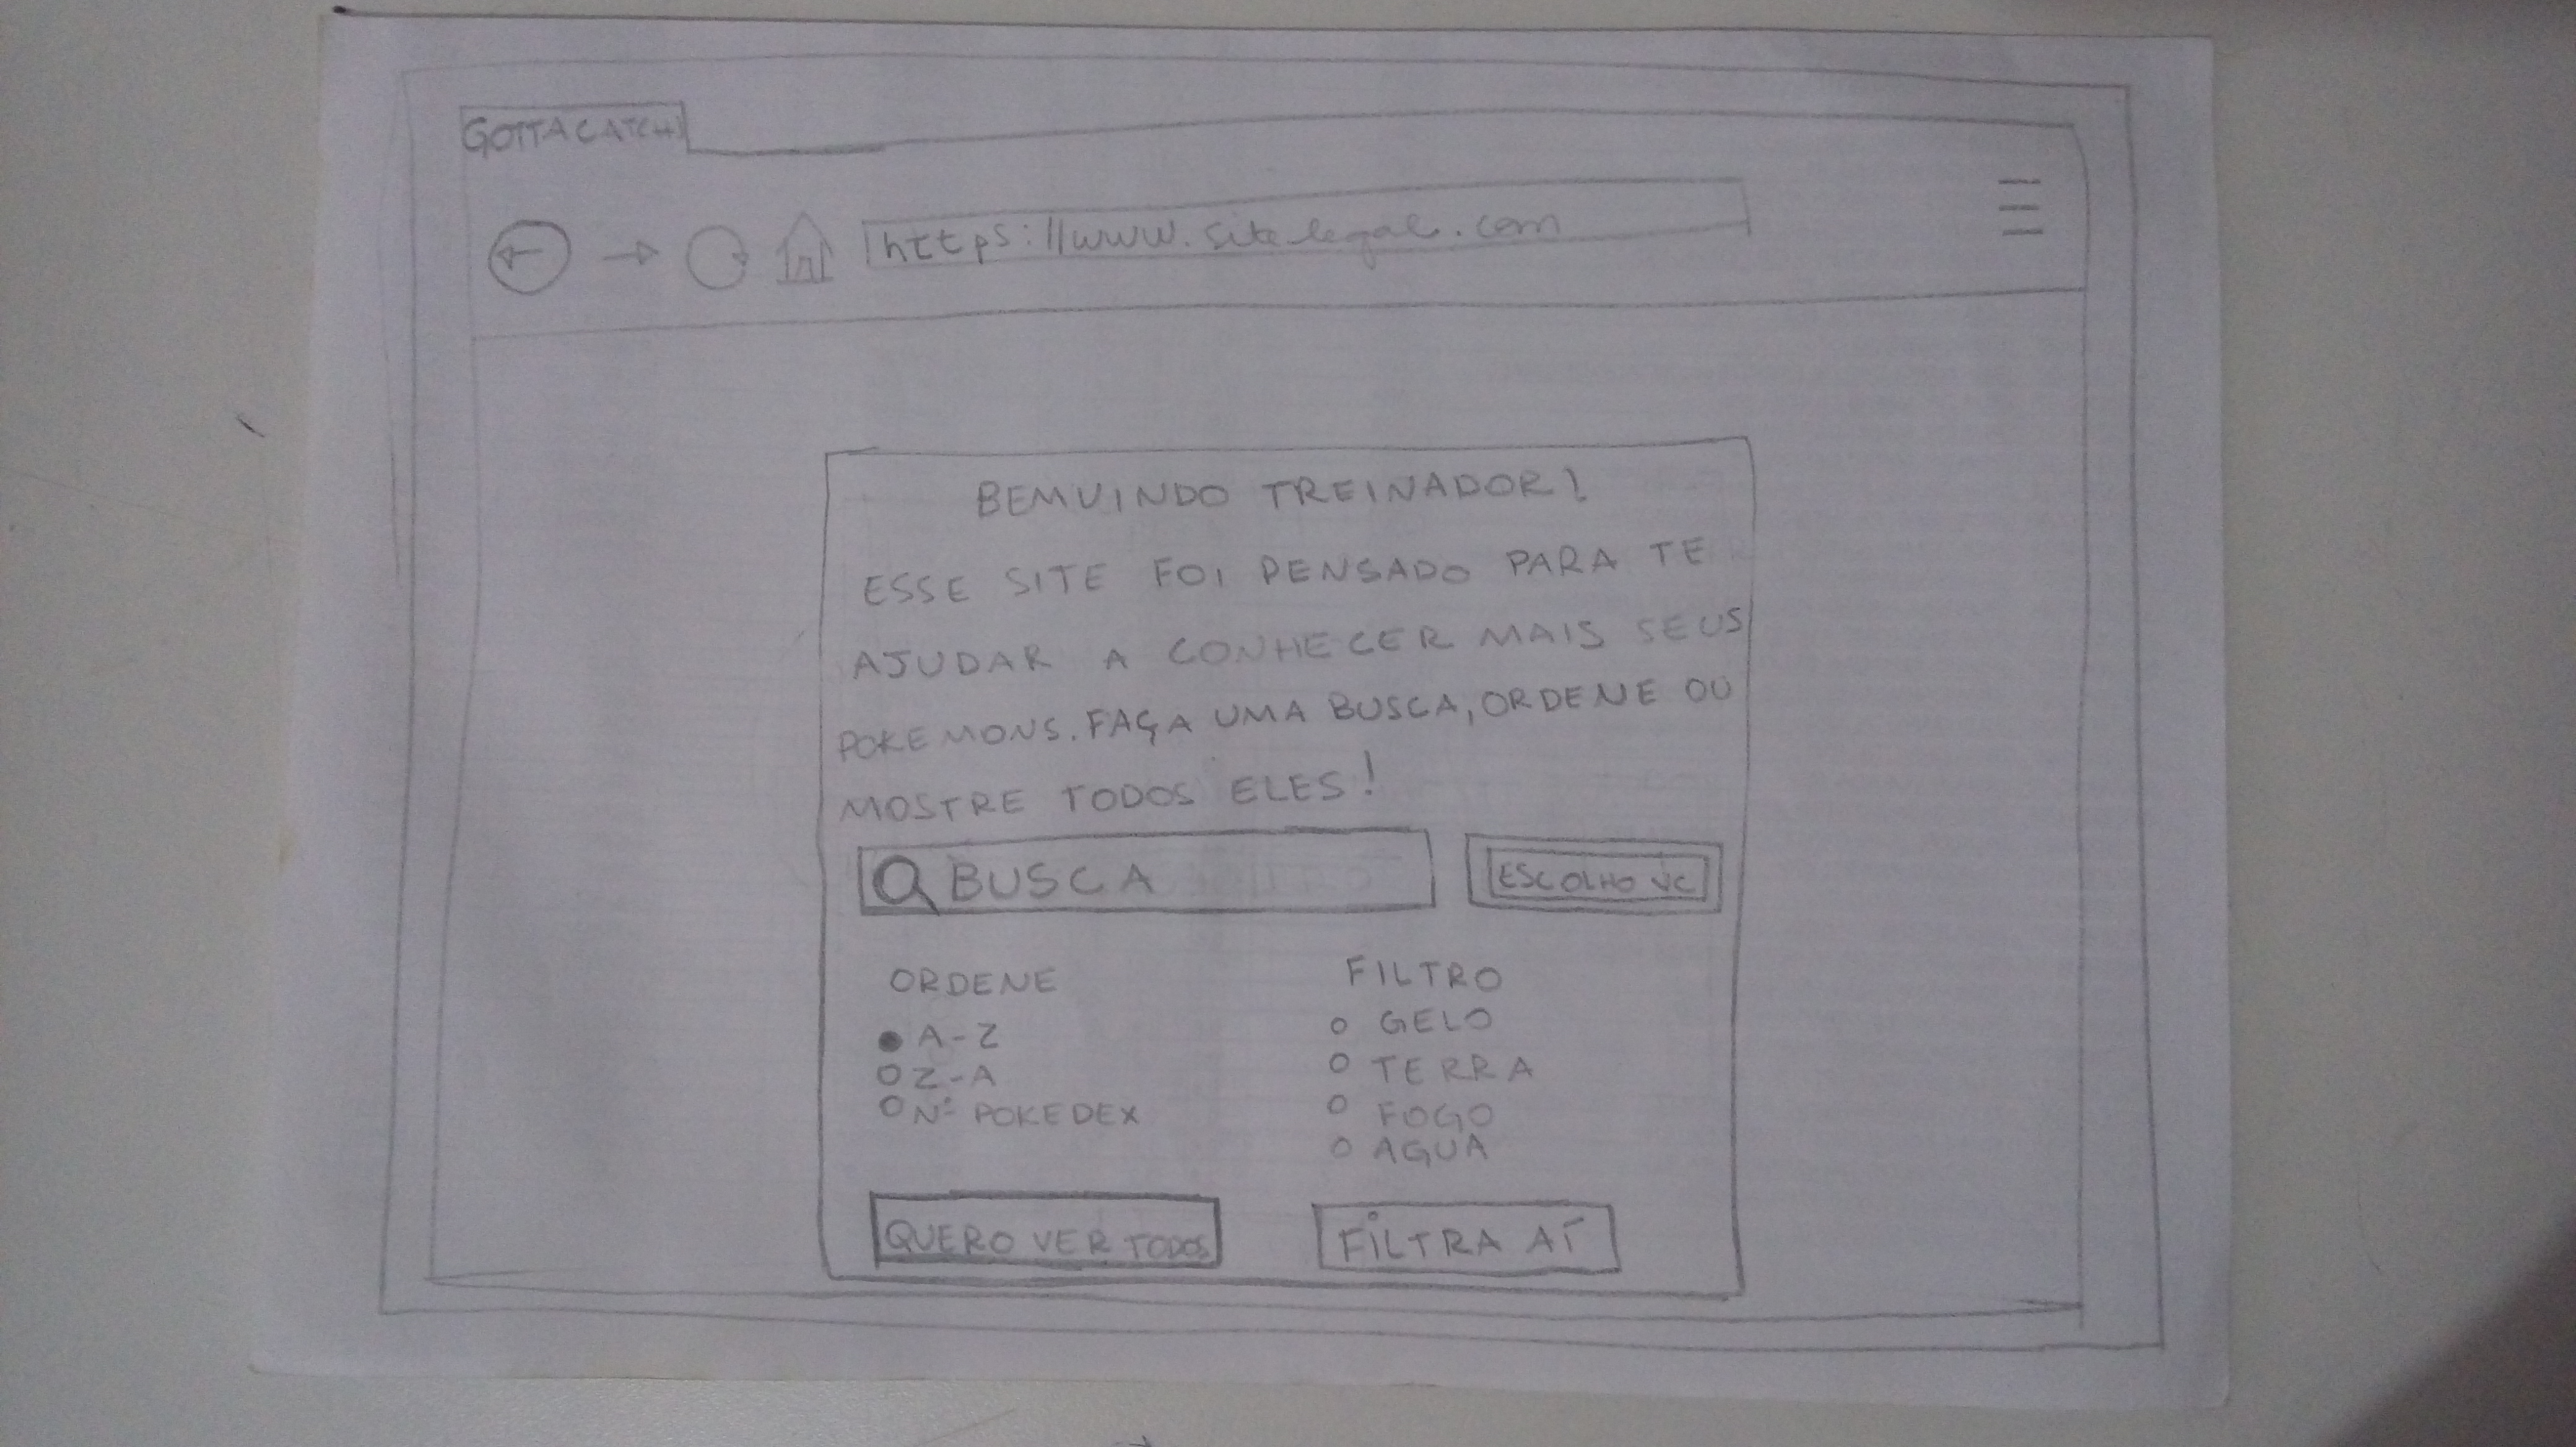 GOTTA CATCH
https://www.sitelegal.com
BEMVINDO TREINADOR!
ESSE SITE FOI PENSADO PARA TE
AJUDAR A CONHECER MAIS SEUS
POKEMONS. FAÇA UMA BUSCA, ORDENE OU
MOSTRE TODOS ELES!
BUSCA
ESCOLHO VC
ORDENE
A-Z
Z-A
Nº POKEDEX
FILTRO
GELO
TERRA
FOGO
AGUA
QUERO VER TODOS
FILTRA AÍ